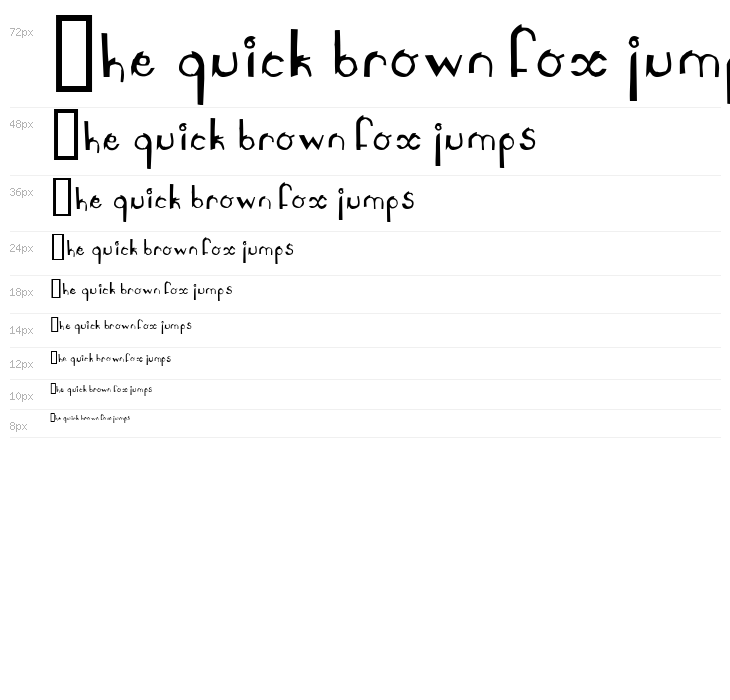 72px ▯he quick brown fox jump
48px ▯he quick brown fox jumps
36px ▯he quick brown fox jumps
24px ▯he quick brown fox jumps
18px ▯he quick brown fox jumps
14px ▯he quick brown fox jumps
12px ▯he quick brown fox jumps
10px ▯he quick brown fox jumps
8px ▯he quick brown fox jumps